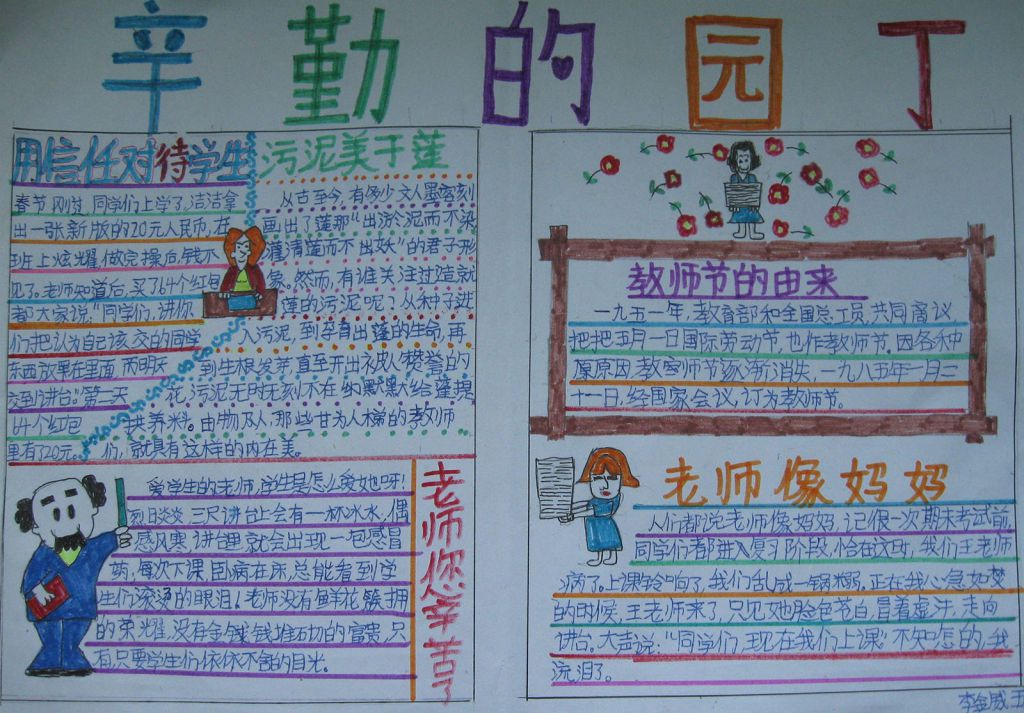 辛勤的园丁
用信任对待学生
春节刚过,同学们上学了,洁洁拿
出一张新版的20元人民币,在
班上炫耀,做完操后,钱不
见了。老师知道后,买了64个红包
都大家说:"同学们,请你
们把认为自己该交的同学
东西放在里面,而明天
交到讲台"。第二天
64个红包
里有120元。
污泥美于莲
从古至今,有多少文人墨客刻
画出了莲那"出淤泥而不染
濯清莲而不出妖"的君子形
象。然而,有谁关注过造就
莲的污泥呢?从种子进
入污泥,到孕育出莲的生命,再
到生根发芽,直至开出被人赞誉的
花,污泥无时无刻不在幼默默给莲提
供养料。由物及人,那些甘为人梯的教师
们,就具有这样的内在美。
爱学生的老师,学生是怎么爱她呀!
烈日炎炎,三尺讲台上会有一杯冰水,偶
感风寒,讲台里就会出现一包感冒
药,每次下课,卧病在床,总能看到学
生们滚烫的眼泪!老师没有鲜花簇拥
的荣耀,没有金钱堆石切的富贵,只
有,只要学生们依依不舍的目光。
老师您辛苦了
教师节的由来
一九五一年,教育部和全国总工员,共同商议,
把把五月一日国际劳动节,也作教师节。因各种
原原因,教师节逐渐消失,一九八五年一月二
十一日,经国家会议,订为教师节。
老师像妈妈
人们都说老师像妈妈,记很一次期末考试前,
同学们都进入复习阶段,恰在这时,我们王老师
病了。上课铃响了,我们乱成一锅粥。正在我心急如焚
的时候,王老师来了,只见她脸色苍白,冒着虚汗,走向
讲台。大声说:"同学们,现在我们上课"不知怎的,我
流泪了。
李金威